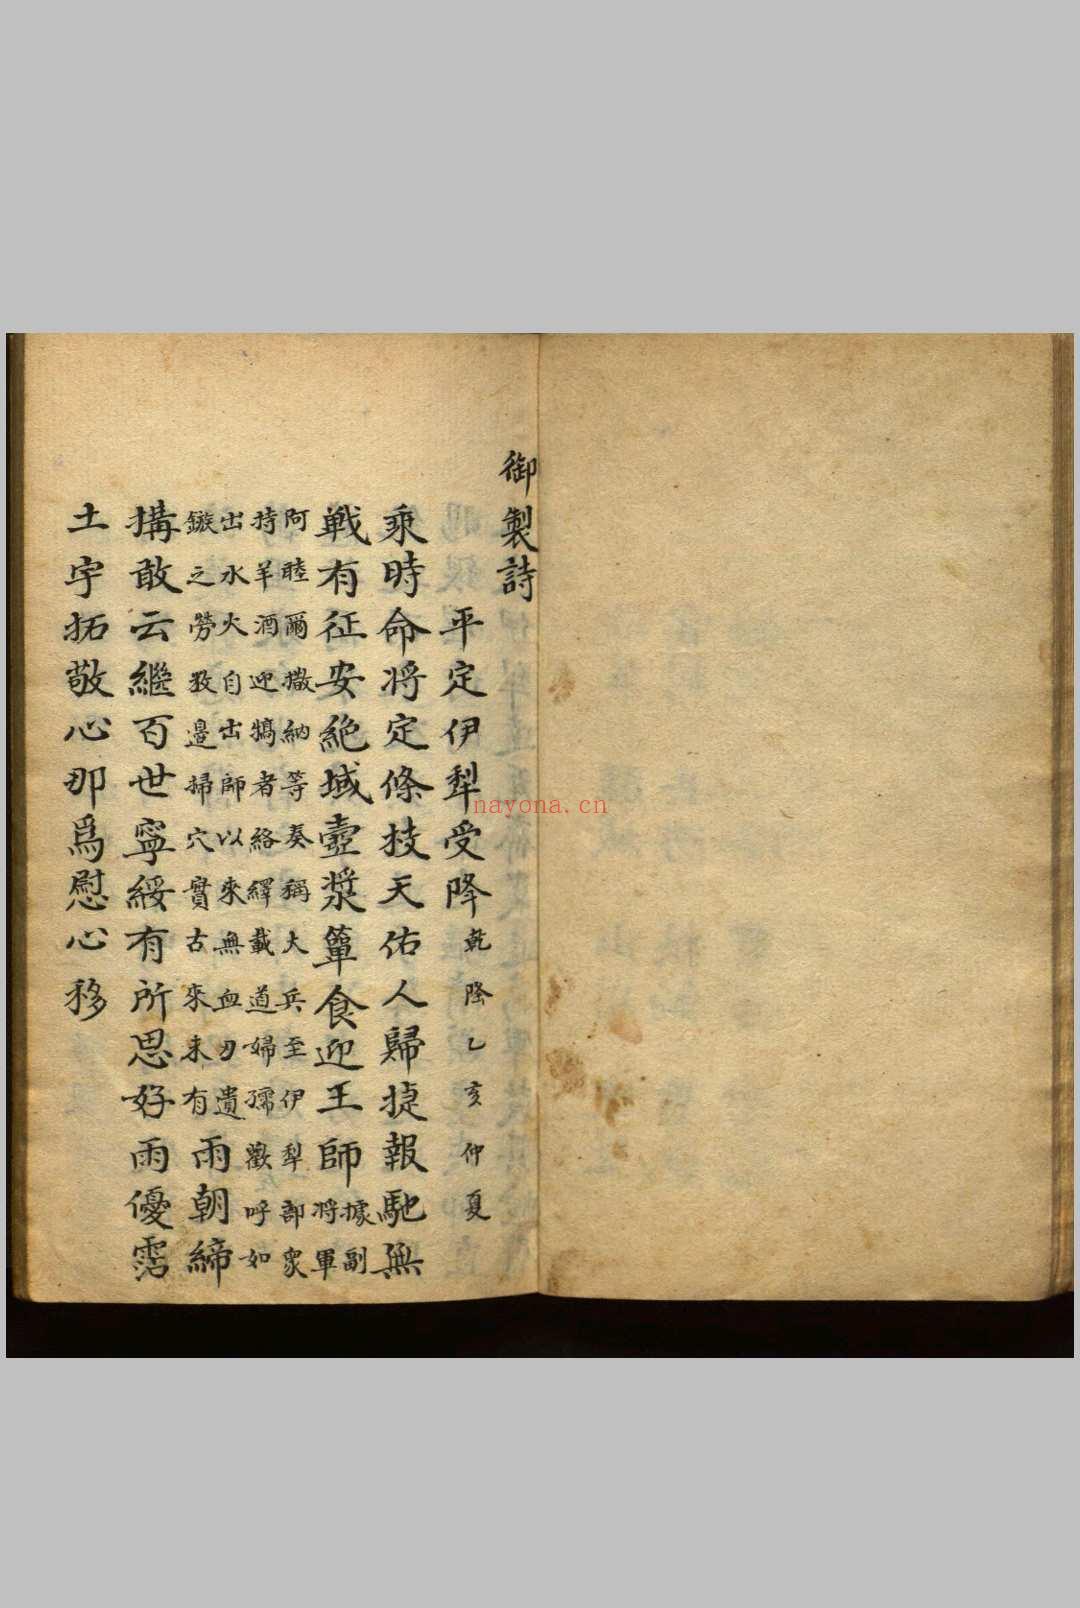 御製詩
平定伊犁受降乾隆乙亥仲夏
乗時命將定條技天佑人歸捷報馳無
戦有征安絕域壼漿簞食迎王師據副
將軍
阿睦爾撒納等奏稱大兵至伊犁部眾
持羊酒迎犒者絡繹載道婦孺歡呼如
出水火自出師以來無血刃遺
鏃之勞敉邊掃穴實古來未有雨朝締
搆敢云繼百世寧綏有所思好雨優霑
土宇拓敬心那爲慰心移
nayona.cn